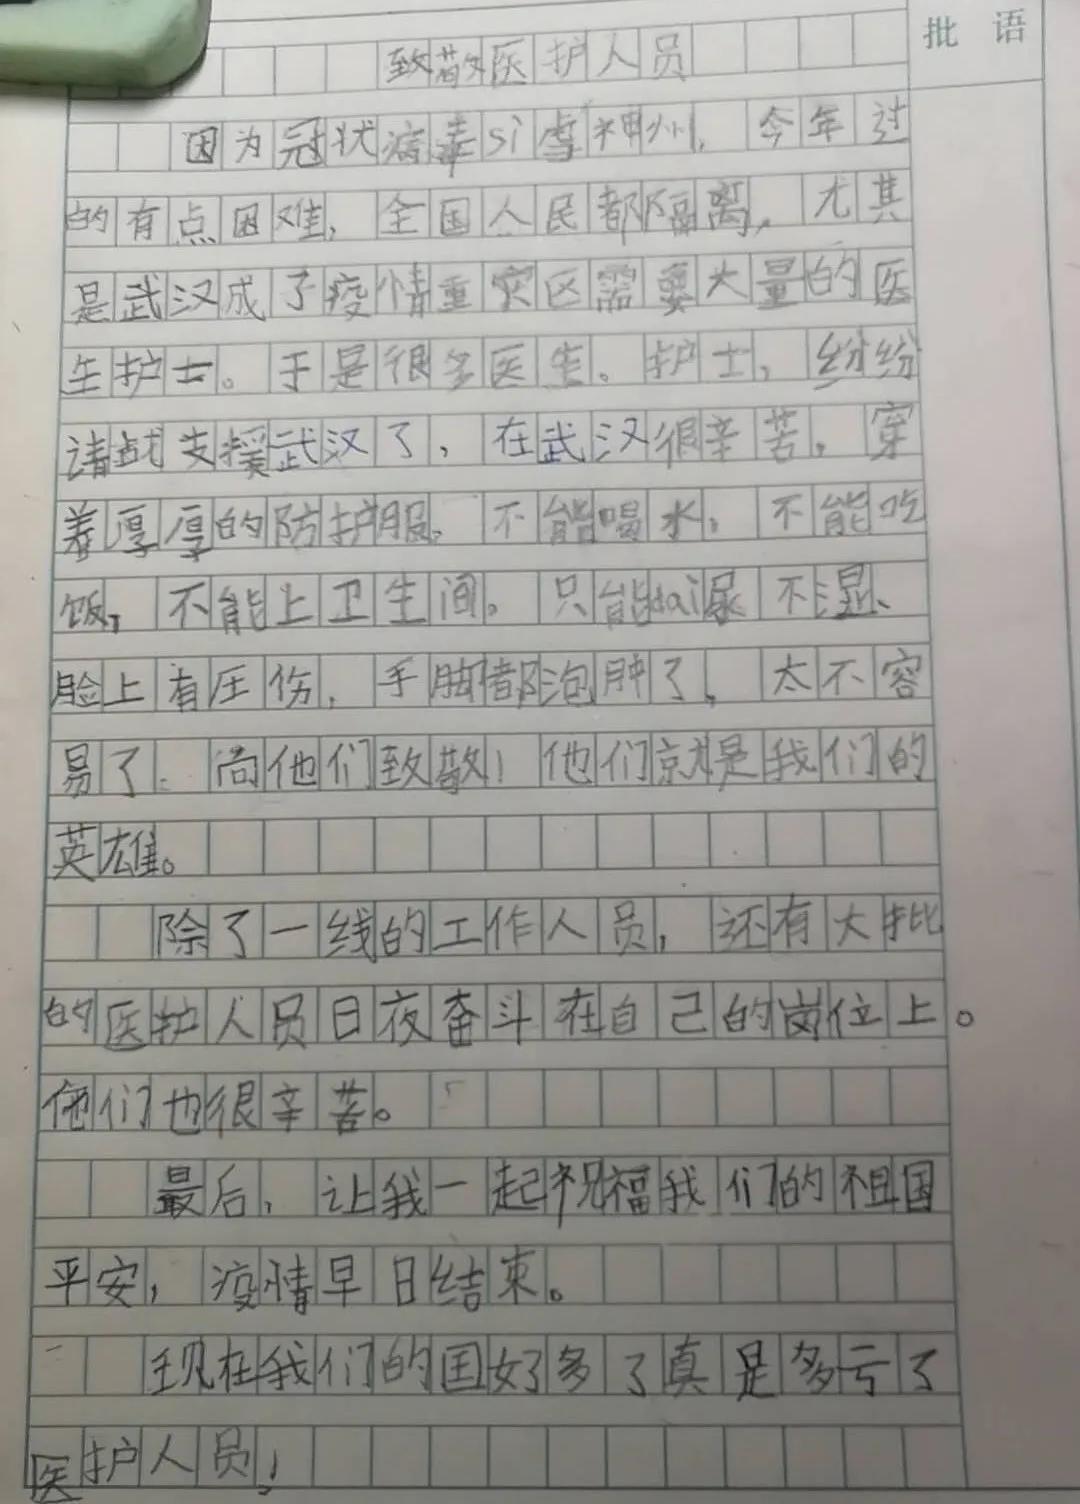 批语
致敬医护人员
因为冠状病毒sì虐神州，今年过
的有点困难，全国人民都隔离，尤其
是武汉成了疫情重灾区需要大量的医
生护士。于是很多医生。护士，纷纷
请战支援武汉了，在武汉很辛苦，穿
着厚厚的防护服，不能喝水，不能吃
饭，不能上卫生间。只能dai尿不湿、
脸上有压伤，手脚都泡肿了，太不容
易了.向他们致敬！他们就是我们的
英雄。
除了一线的工作人员，还有大批
的医护人员日夜奋斗在自己的岗位上。
他们也很辛苦。
最后，让我一起祝福我们的祖国
平安，疫情早日结束。
现在我们的国好多了真是多亏了
医护人员！